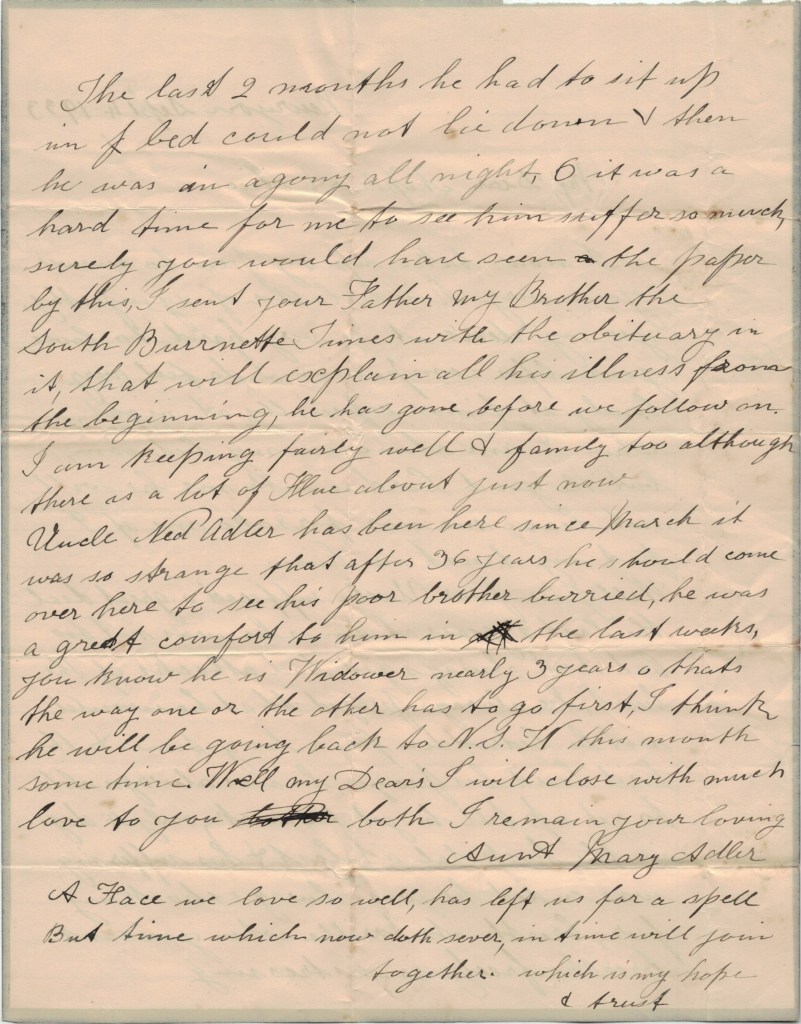 The last 2 months he had to sit up
in of bed could not lie down & then
he was in agony all night, O it was a
hard time for me to see him suffer so much,
surely you would have seen the paper
by this, I sent your Father my Brother the
South Burrnette Times with the obituary in
it, that will explain all his illness from
the beginning, he has gone before we follow on.
I am keeping fairly well & family too although
there as a lot of Flue about just now
Uncle Ned Adler has been here since March it
was so strange that after 36 years he should come
over here to see his poor brother burried, he was
a great comfort to him in the last weeks,
you know he is Widower nearly 3 years o thats
the way one or the other has to go first, I think
he will be going back to N.S.W this month
some time. Well my Dear's I will close with much
love to you both I remain your loving
Aunt Mary Adler
A Face we love so well, has left us for a spell
But time which now doth sever, in time will join
together. which is my hope
& trust